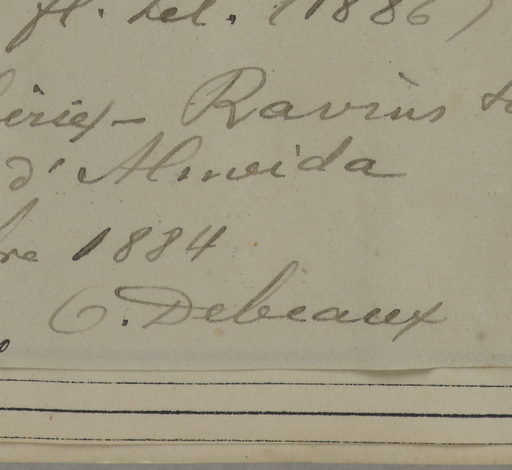 fl. Sel. (1886)
Ravins
d'Almeida
bre 1884
O. Debeaux